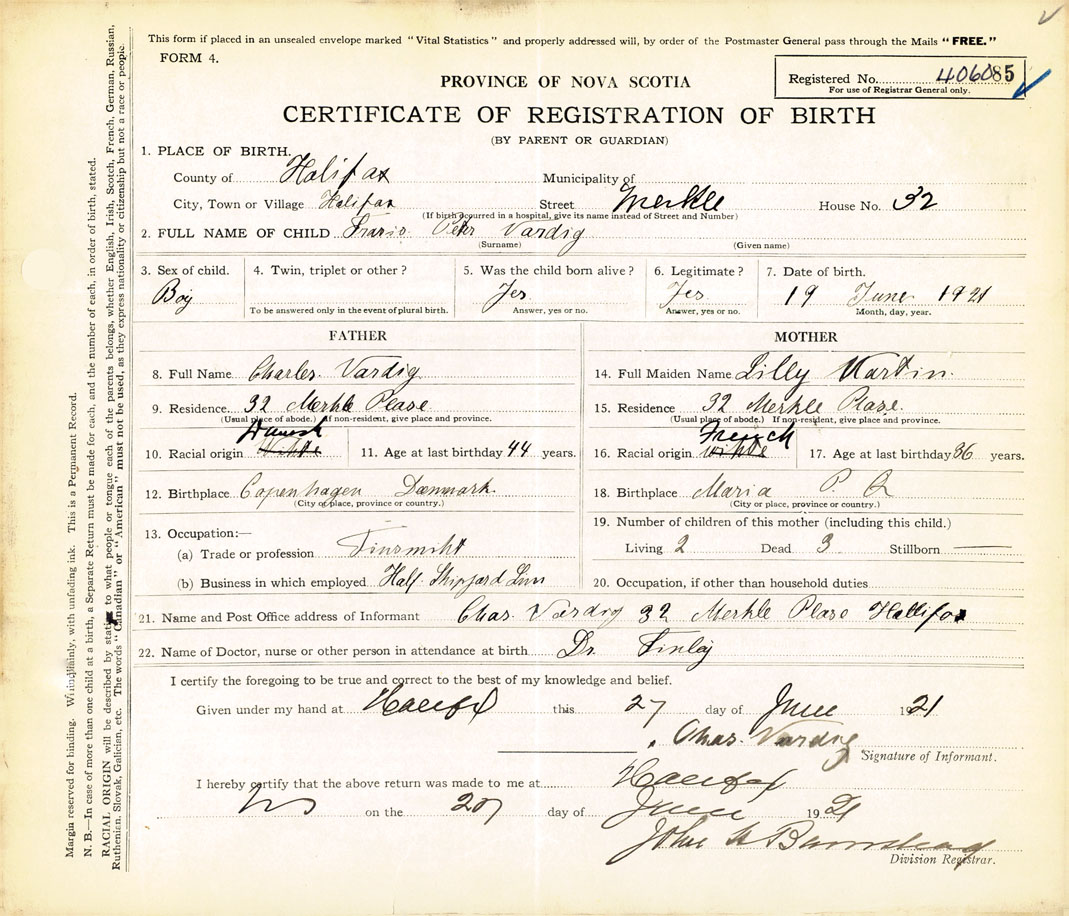 This form if placed in an unsealed envelope marked "Vital Statistics" and properly addressed will, by order of the Postmaster General pass through the Mails "FREE."
FORM 4.
Registered No. 406085
For use of Registrar General only.
PROVINCE OF NOVA SCOTIA
CERTIFICATE OF REGISTRATION OF BIRTH
(BY PARENT OR GUARDIAN)
1. PLACE OF BIRTH.
County of Halifax Municipality of
City, Town or Village Halifax Street Merkle House No. 32
(If birth occurred in a hospital, give its name instead of Street and Number)
2. FULL NAME OF CHILD Peter Vardig
(Surname) (Given name)
3. Sex of child. 4. Twin, triplet or other? 5. Was the child born alive? 6. Legitimate? 7. Date of birth.
Boy Yes Yes 19 June 1921
To be answered only in the event of plural birth. Answer, yes or no. Answer, yes or no. Month, day, year.
FATHER
8. Full Name Charles Vardig
9. Residence 32 Merkle Plase
(Usual place of abode.) If non-resident, give place and province.
Danish
10. Racial origin White 11. Age at last birthday 44 years.
12. Birthplace Copenhagen Dænmark
(City or place, province or country.)
13. Occupation:—
(a) Trade or profession Tinsmiht
(b) Business in which employed Half. Shipyard
MOTHER
14. Full Maiden Name Lilly Martin.
15. Residence 32 Merkle Plase.
(Usual place of abode.) If non-resident, give place and province.
French
16. Racial origin White 17. Age at last birthday 36 years.
18. Birthplace Maria P. Q
(City or place, province or country.)
19. Number of children of this mother (including this child.)
Living 2 Dead 3 Stillborn —
20. Occupation, if other than household duties
21. Name and Post Office address of Informant Chas. Vardig 32 Merkle Plase Hallifax
22. Name of Doctor, nurse or other person in attendance at birth Dr. Finlay
I certify the foregoing to be true and correct to the best of my knowledge and belief.
Given under my hand at Halifax this 27 day of June 1921
Chas. Vardig
Signature of Informant.
I hereby certify that the above return was made to me at Halifax
on the 27 day of June 1921
John A Barnstead
Division Registrar.
Margin reserved for binding. Writing plainly, with unfading ink. This is a Permanent Record.
N. B.—In case of more than one child at a birth, a Separate Return must be made for each, and the number of each, in order of birth, stated.
RACIAL ORIGIN will be described by stating to what people or tongue each of the parents belongs, whether English, Irish, Scotch, French, German, Russian,
Ruthenian, Slovak, Galician, etc. The words "Canadian" or "American" must not be used, as they express nationality or citizenship but not a race or people.